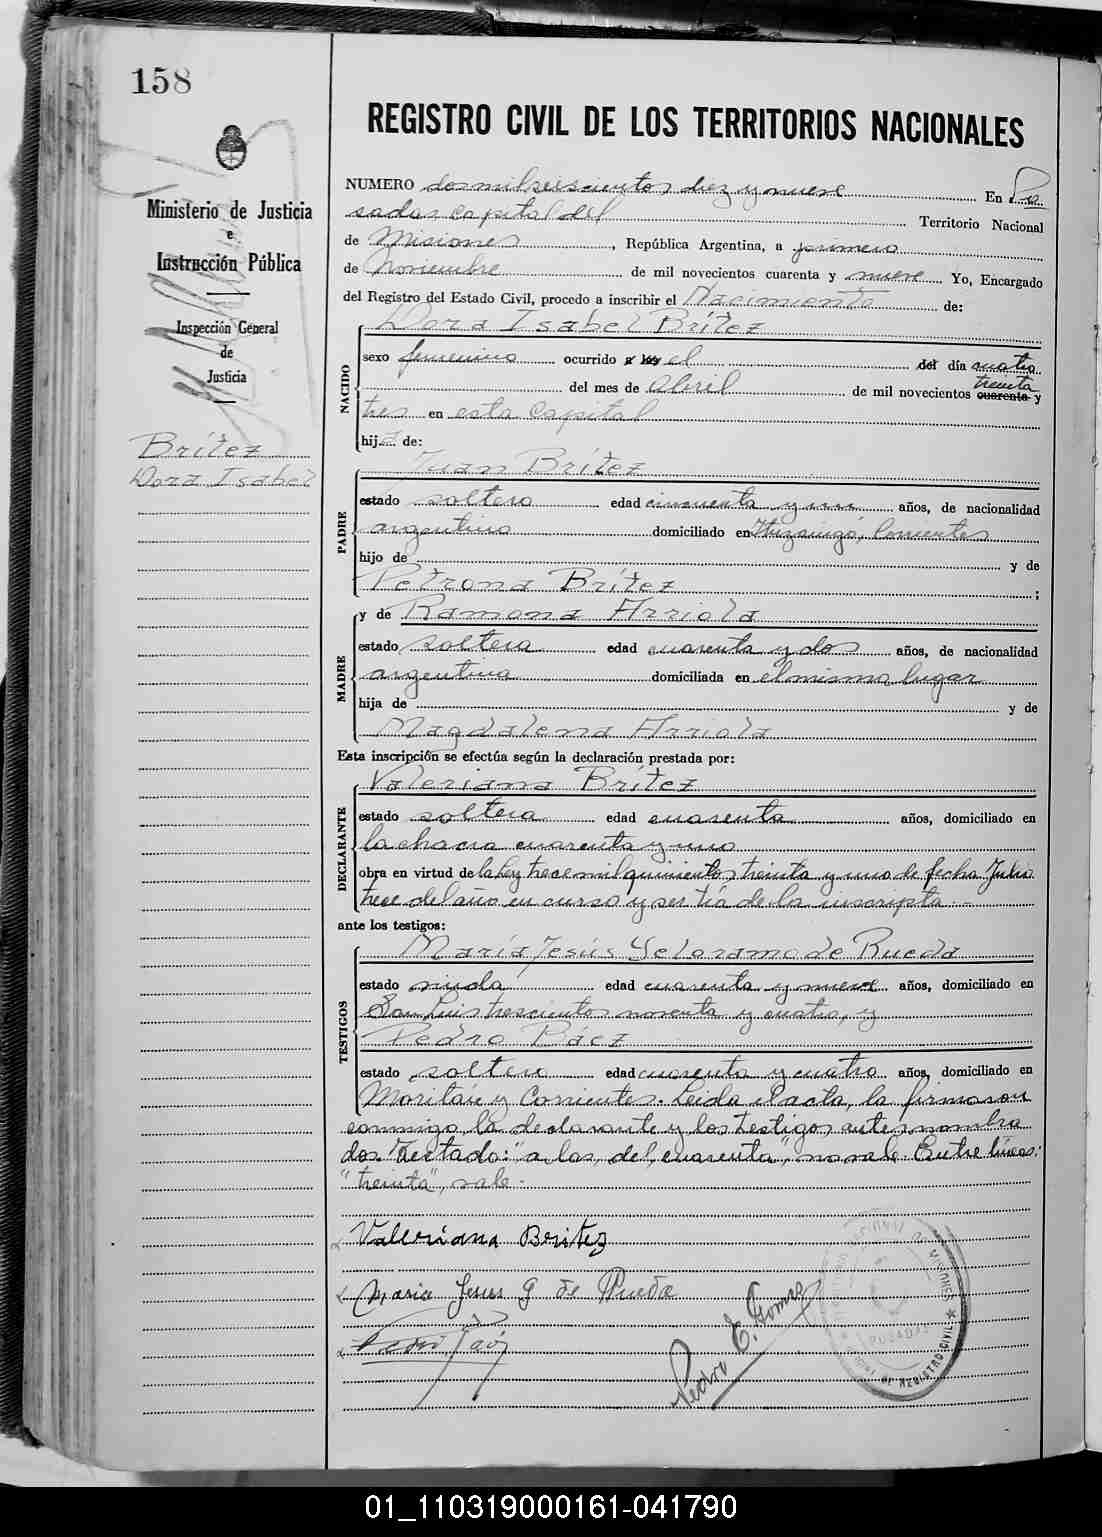 158
REGISTRO CIVIL DE LOS TERRITORIOS NACIONALES
Ministerio de Justicia
e
Instrucción Pública
Inspección General
de
Justicia
Brítez
Dora Isabel
NUMERO dos mil seiscientos diez y nueve En Po
sadas capital del Territorio Nacional
de Misiones, República Argentina, a primero
de Noviembre de mil novecientos cuarenta y nueve. Yo, Encargado
del Registro del Estado Civil, procedo a inscribir el Nacimiento de:
NACIDO
Dora Isabel Brítez
sexo femenino ocurrido a las el del día cuatro
del mes de Abril de mil novecientos cuarenta treinta y
tres en esta Capital
hija de:
PADRE
Juan Brítez
estado soltero edad cincuenta y un años, de nacionalidad
argentino domiciliado en Ituzaingó, Corrientes
hijo de y de
Petrona Brítez ;
MADRE
y de Ramona Arriola
estado soltera edad cuarenta y dos años, de nacionalidad
argentina domiciliada en el mismo lugar
hija de y de
Magdalena Arriola
Esta inscripción se efectúa según la declaración prestada por:
DECLARANTE
Valeriana Brítez
estado soltera edad cuarenta años, domiciliado en
la chacra cuarenta y uno
obra en virtud de la Ley trece mil quinientos treinta y uno de fecha Julio
trece del año en curso y ser tía de la inscripta.-
ante los testigos:
TESTIGOS
María Jesús de Rueda
estado viuda edad cuarenta y nueve años, domiciliado en
San Luis trescientos noventa y cuatro, y
Pedro Báez
estado soltero edad cuarenta y cuatro años, domiciliado en
y Corrientes. Leída el acta, la firmaron
conmigo la declarante y los testigos antes nombra
dos. Testado: "a las, del, cuarenta", no vale. Entre líneas:
"treinta", vale.-
Valeriana Britez
Maria Jesus G de Rueda
Pedro E. Gomez
POSADAS
REGISTRO CIVIL
01_110319000161-041790